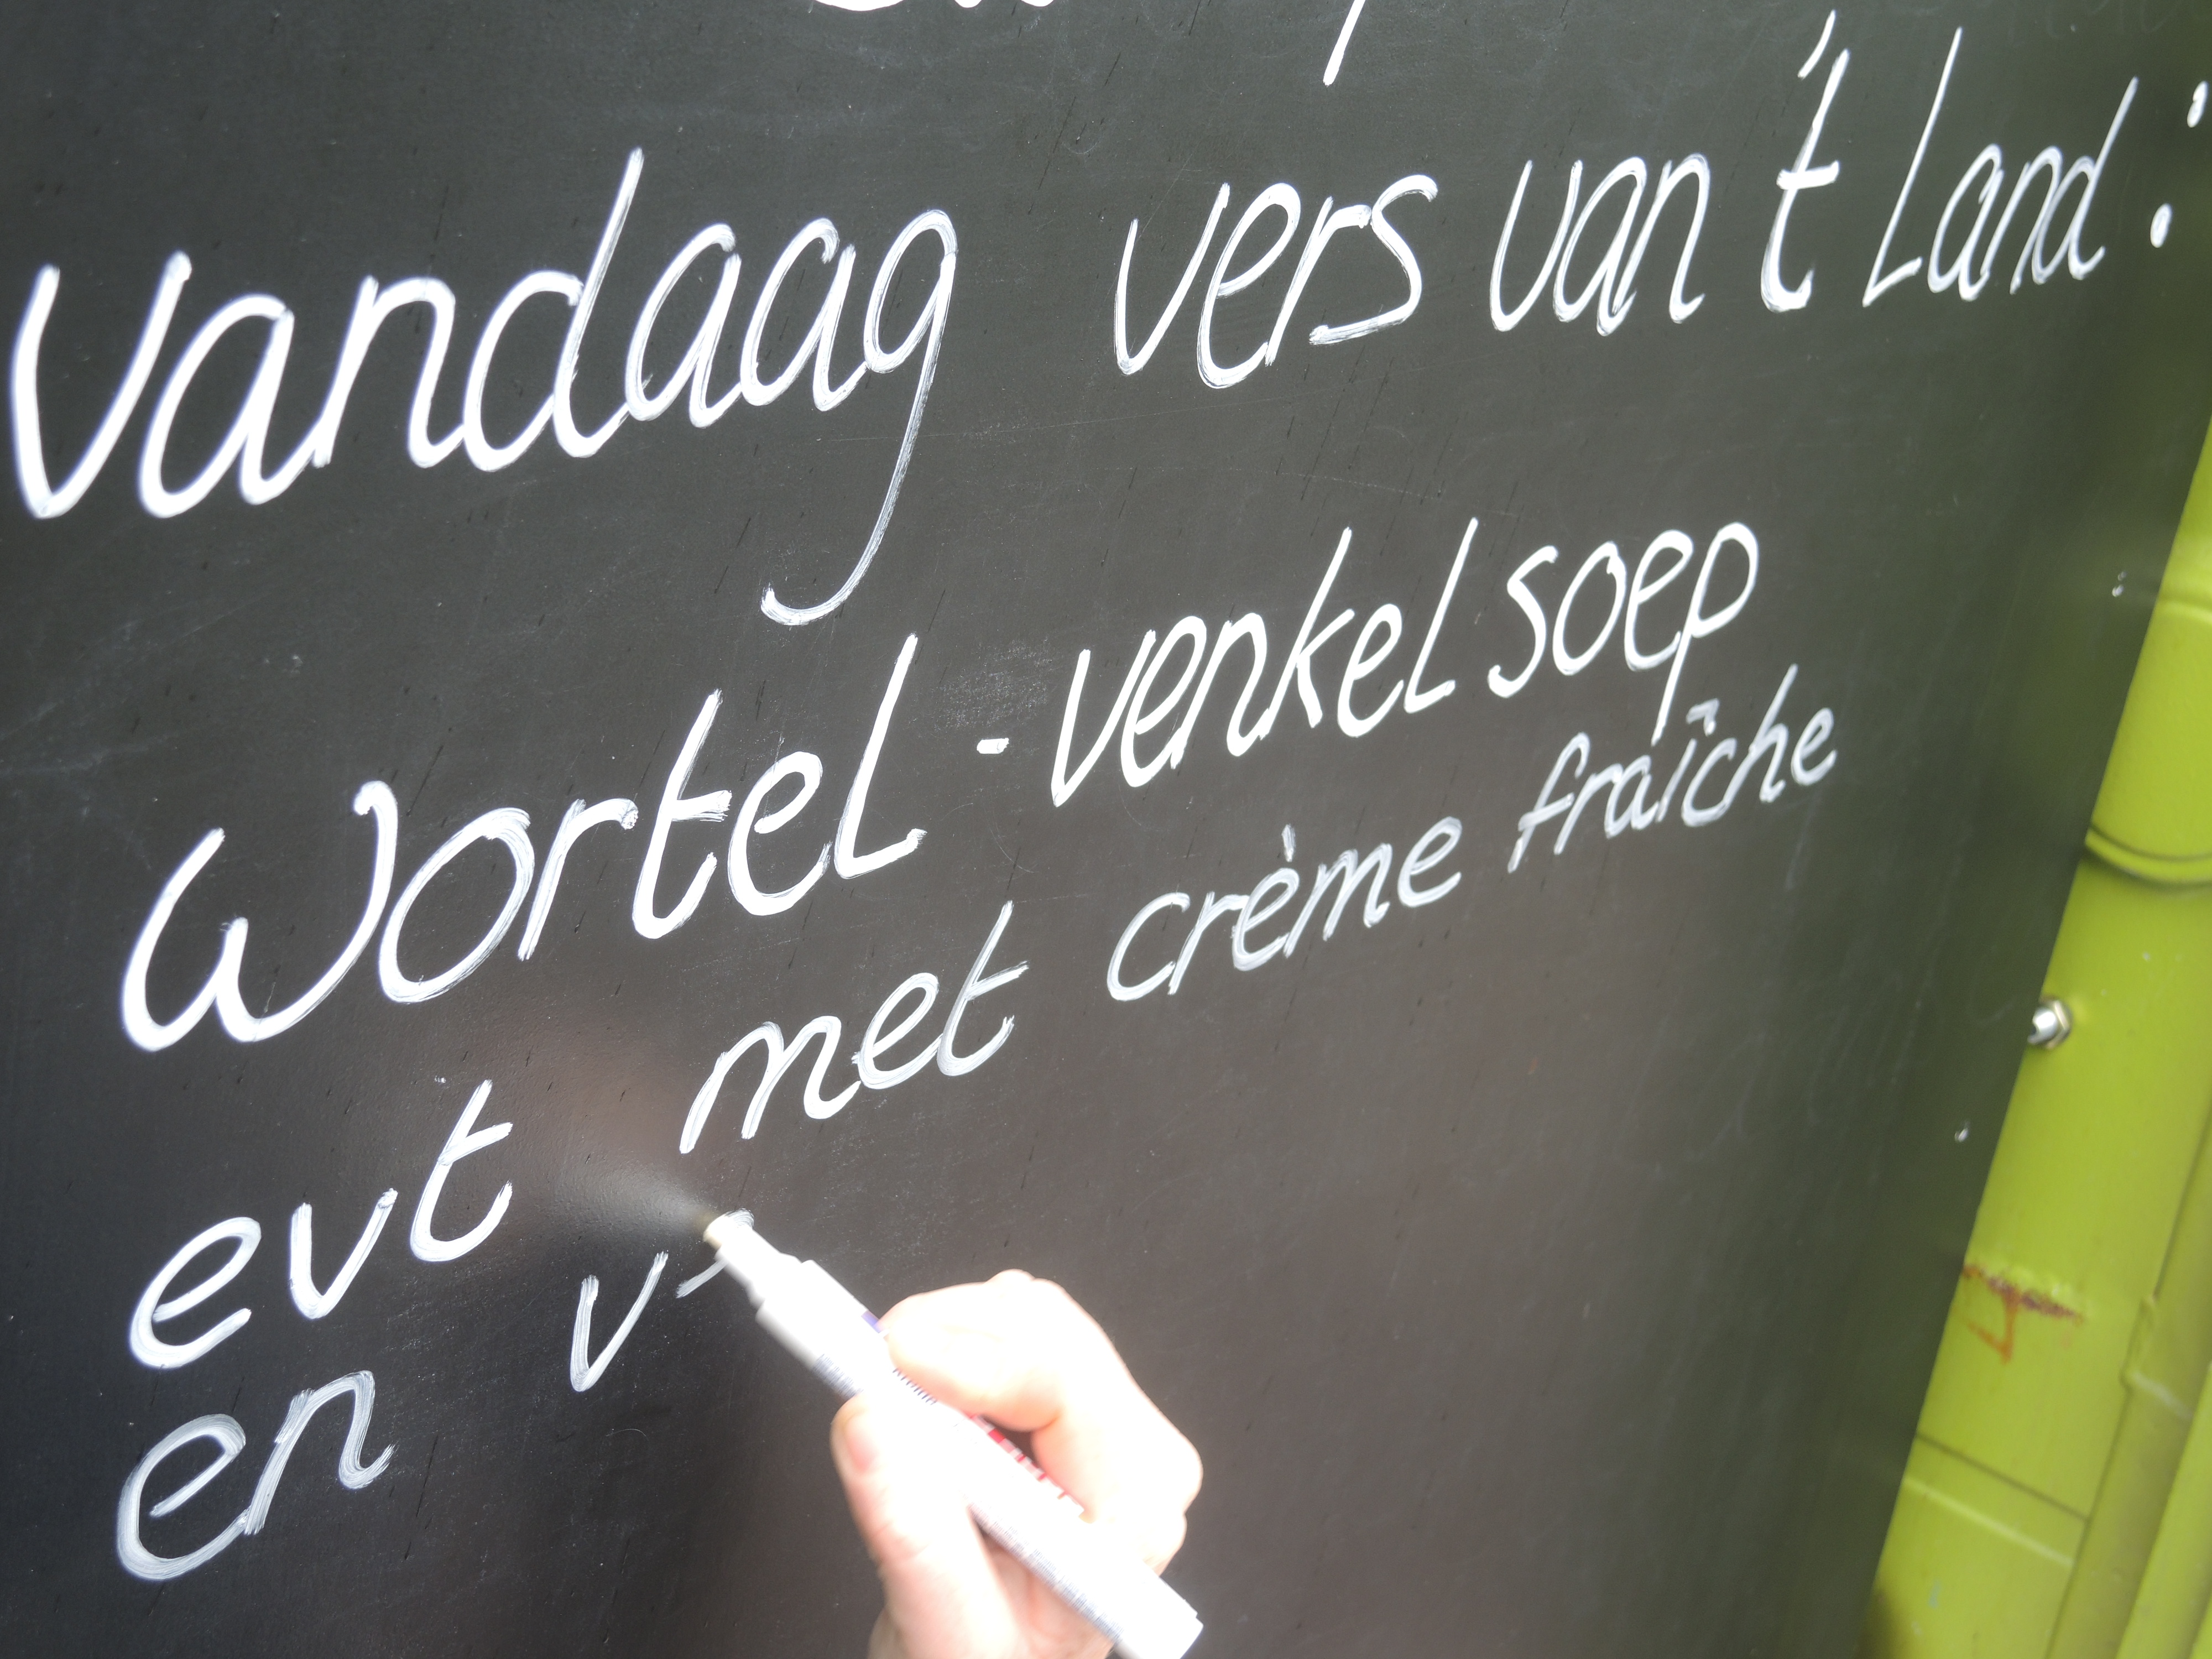 vandaag vers van 't Land:
wortel - venkel soep
evt met crème fraîche
en